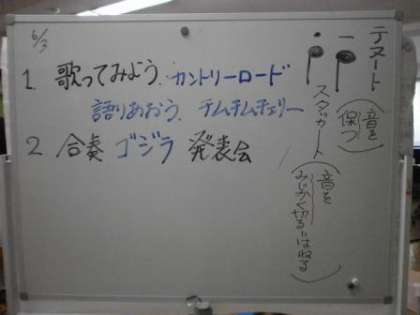 6/3
1 歌ってみよう、カントリーロード
語りあおう、チムチムチェリー
2 合奏 ゴジラ 発表会
テヌート
(音を
保つ)
スタッカート
(音を
みじかく切る、はねる)